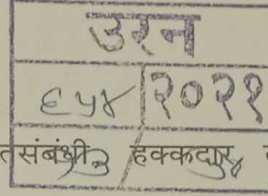 उरन
६५४ २०२१
तसंबंधी हक्कदार